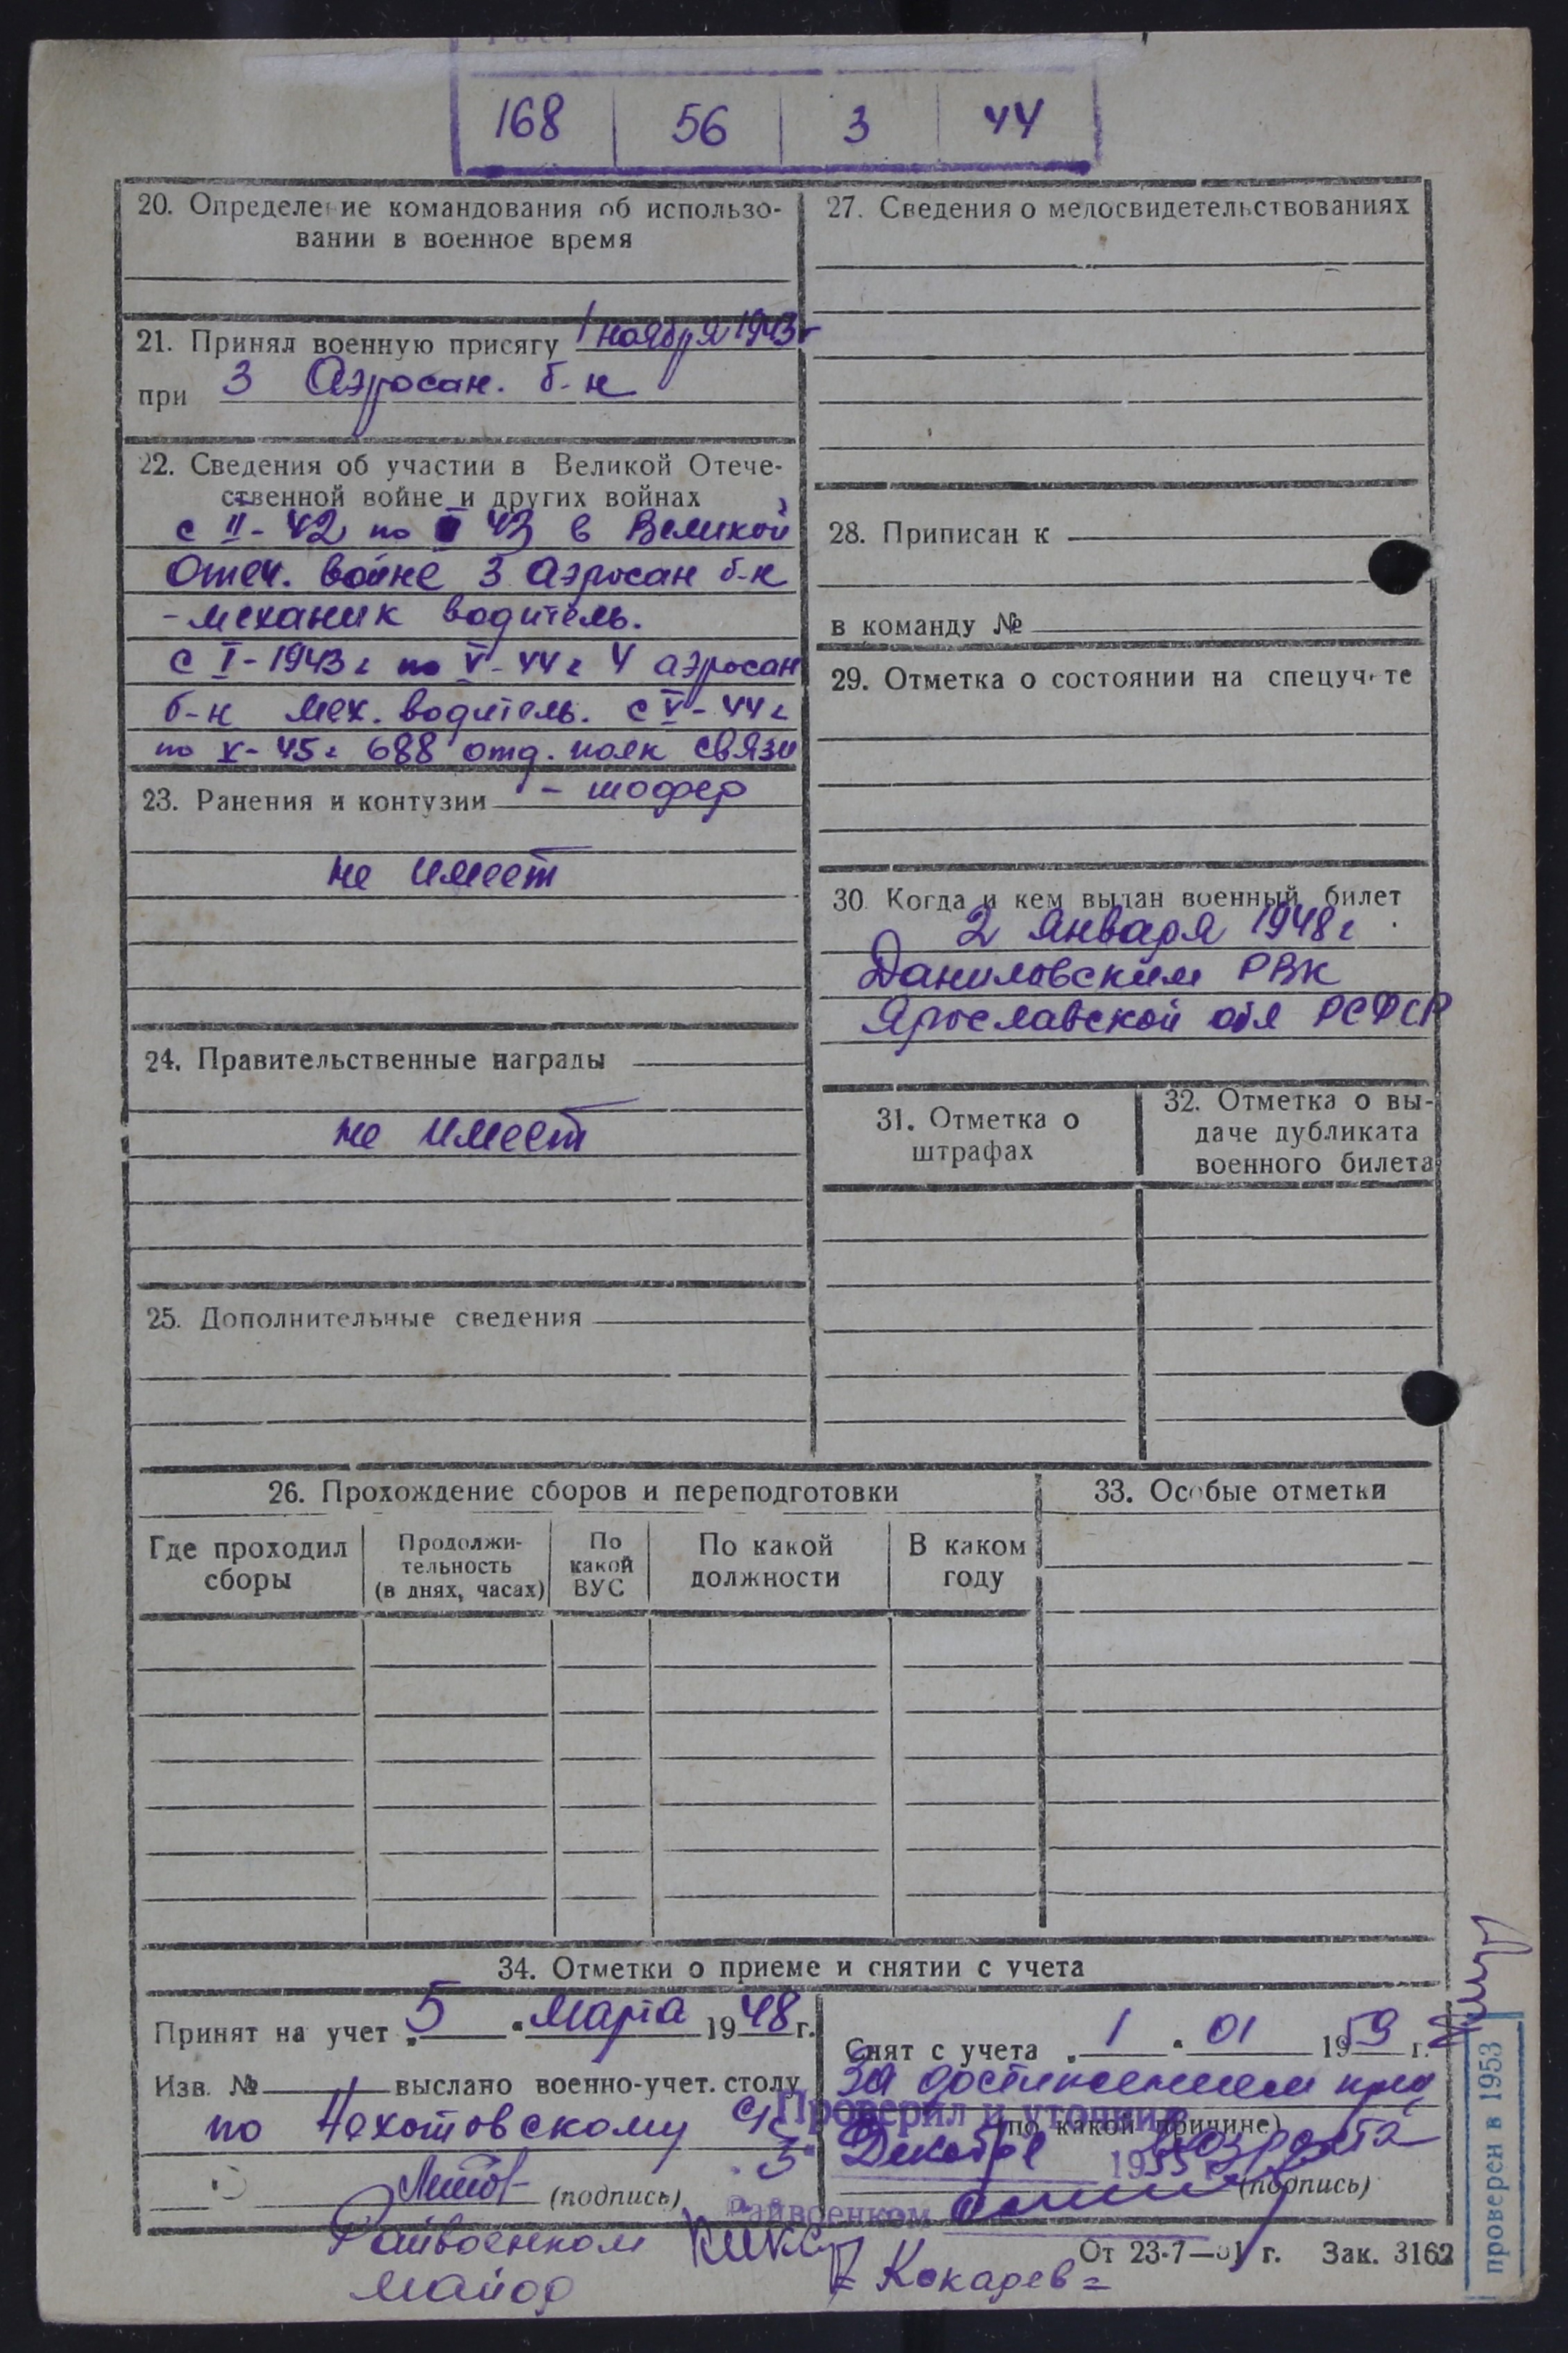 Рост
168 56 3 44
20. Определение командования об использо-
вании в военное время
21. Принял военную присягу 1 ноября 1943 г
при 3 Аэросан. б-н
22. Сведения об участии в Великой Отече-
ственной войне и других войнах
с II-42 по 43 в Великой
Отеч. войне 3 аэросан б-н
-механик водитель.
с I-1943 г по V-44 г 4 аэросан
б-н мех. водитель. с V-44 г
по X-45 г 688 отд. полк связи
- шофер
23. Ранения и контузии
не имеет
24. Правительственные награды
не имеет
25. Дополнительные сведения
27. Сведения о медосвидетельствованиях
28. Приписан к
в команду №
29. Отметка о состоянии на спецучете
30. Когда и кем выдан военный билет
2 января 1948 г
Даниловским РВК
Ярославской обл РСФСР
31. Отметка о
штрафах
32. Отметка о вы-
даче дубликата
военного билета
26. Прохождение сборов и переподготовки
Где проходил
сборы
Продолжи-
тельность
(в днях, часах)
По
какой
ВУС
По какой
должности
В каком
году
33. Особые отметки
34. Отметки о приеме и снятии с учета
Принят на учет „5" марта 1948 г.
Изв. № выслано военно-учет. столу
по Нехотовскому с/с
(подпись)
Райвоенком
майор
= Кокарев =
Снят с учета „1" 01 1959 г.
За достижением пред
(по какой причине)
возраста
(подпись)
Проверил и уточнил
„3" Декабре 1955 г.
Райвоенком
От 23-7—51 г. Зак. 3162
проверен в 1953